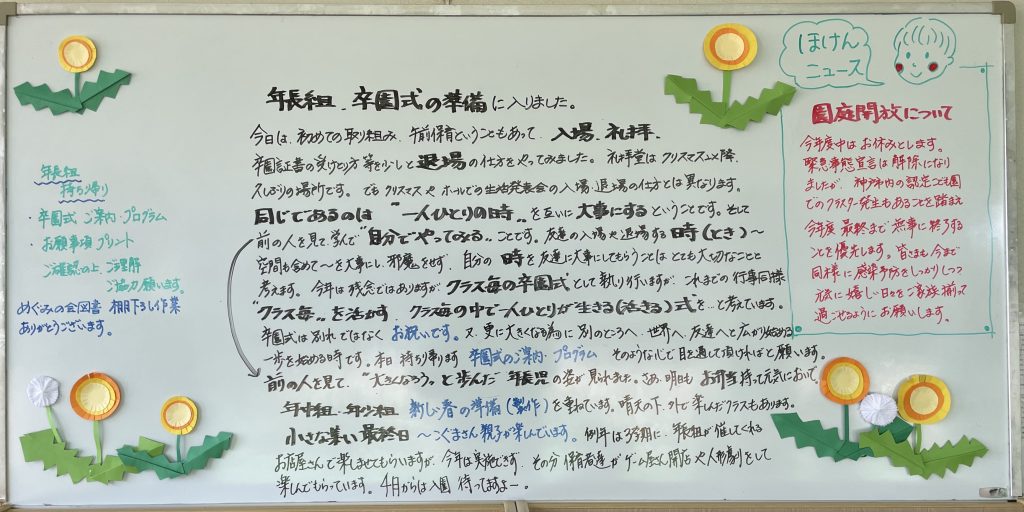 年長組
持ち帰り
・卒園式 ご案内・プログラム
・お願事項プリント
ご確認の上、ご理解
ご協力願います。
めぐみの会図書 棚下ろし作業
ありがとうございます。
年長組、卒園式の準備に入りました。
今日は、初めての取り組み、午前保育ということもあって、入場、礼拝、
卒園証書の受けとり方 等を少しと退場の仕方をやってみました。礼拝堂はクリスマス以降、
久しぶりの場所です。でもクリスマスやホールでの生活発表会の入場・退場の仕方とは異なります。
同じであるのは "一人ひとりの時"を互いに大事にするということです。そして
前の人を見て、学んで"自分でやってみる"ことです。友達の入場や退場する時(とき)〜
空間も含めて〜を大事にし、邪魔をせず、自分の時を友達に大事にしてもらうことはとても大切なことと
考えます。今年は残念ではありますがクラス毎の卒園式として執り行いますが、これまでの行事同様
"クラス毎"を活かす、クラス毎の中で一人ひとりが生きる(活きる)式を…と考えています。
卒園式は別れではなく お祝いです。又、更に大きくなる為に別のところへ、世界へ、友達へと広がり始める
一歩を始める時です。本日持ち帰ります 卒園式のご案内・プログラム そのような心で目を通して頂ければと願います。
前の人を見て、"大きくなろう"と歩んだ 年長児の姿が見られました。さあ、明日も お弁当持って元気においで。
年中組、年少組 新しい春の準備(製作)を重ねています。晴天の下、外で楽しんだクラスもあります。
小さな集い最終日 〜こぐまさん親子が楽しんでいます。例年は3学期に、年長組が催してくれる
お店屋さんで楽しませてもらいますが、今年は実施できず、その分 保育者達がゲーム屋さん開店や人形劇をして
楽しんでもらっています。4月からは入園 待ってますよー。
ほけん
ニュース
園庭開放について
今年度中はお休みとします。
緊急事態宣言は解除になり
ましたが、神戸市内の認定こども園
でのクラスター発生もあることを踏まえ
今年度 最終まで無事に終了する
ことを優先します。皆さまも今まで
同様に感染予防をしっかりしつつ
元気に嬉しい日々をご家族揃って
過ごせるようにお願いします。